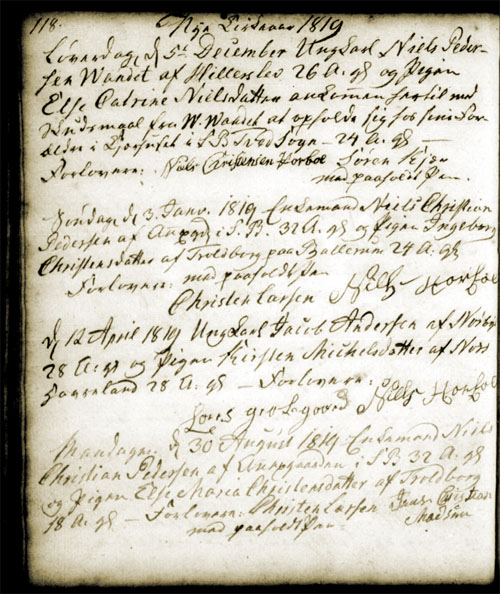 118.
Nye Kirkeaar 1819
Løverdag d 5te December Ungkarl Niels Peder-
sen Wandet af Hillerslev 26 A: gl og Pigen
Else Catrine Nielsdatter ankommen hertil med
Skudsmaal fra W. Wandet at opholde sig hos sine For-
ældre i i S B Tved Sogn - 24 A. gl -
Forlovere: Niels Christensen Horbol Søren
med paaholdt Pen.
Søndag d 3 Janv. 1819 Enkemand Niels Christian
Pedersen af i S. B. 32 A. gl og Pigen Ingeborg
Christensdatter af Troldborg paa Ballerum 24 A: gl
Forlovere: med paaholdt Pen
Christen Larsen Niels Horbol
d 12 April 1819 Ungkarl Jacob Andersen af Nørby
28 A: gl og Pigen Kirsten Michelsdatter af Nors
28 A: gl - Forlovere:
Niels Horbol
Mandagen d 30 August 1819 Enkemand Niels
Christian Pedersen af i S B 32 A. gl
og Pigen Else Maria Christensdatter af Troldborg
18 A. gl - Forlovere: Christen Larsen Jens Christian
med paaholdt Pen. Madsen